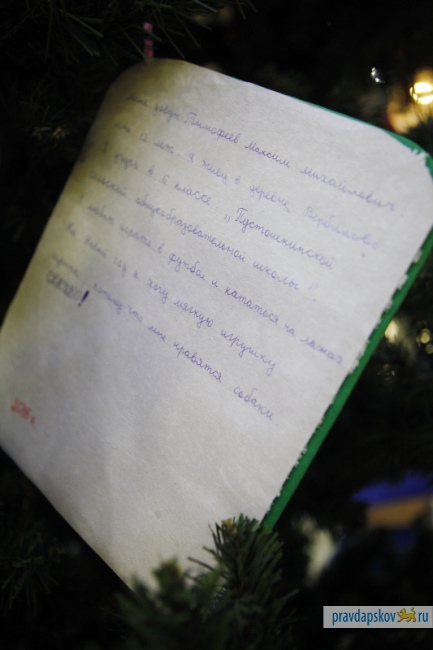 Меня зовут Тимофеев Максим Михайлович.
мне 12 лет я живу в деревне Вербилово
Я учусь в 6 классе „Пустошкинской
сельской общеобразовательной школы".
Я люблю играть в футбол и кататься на лыжах
На Новый год я хочу мягкую игрушку
потому что мне нравятся собаки
СПАСИБО!
2016 г.
pravdapskov.ru